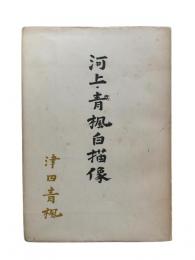 河上・青楓自描像
津田青楓